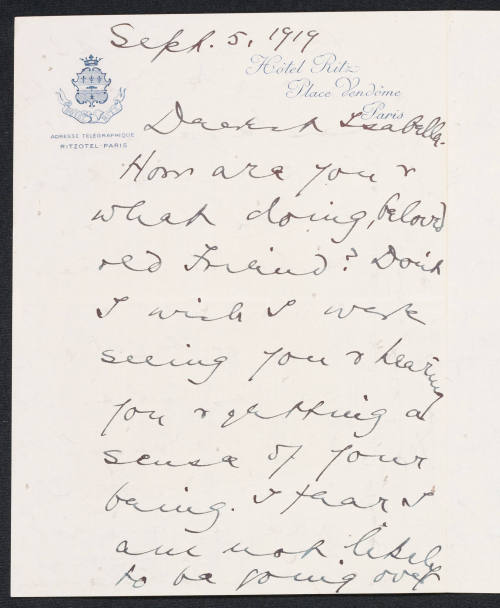 Sept. 5, 1919
Hôtel Ritz
Place Vendôme
Paris
ADRESSE TÉLÉGRAPHIQUE
RITZOTEL-PARIS
Dearest Isabella.
How are you &
what doing, belov'd
old Friend? Don't
I wish I were
seeing you & hearing
you & getting a
sense of your
being. I fear I
am not likely
to be going over